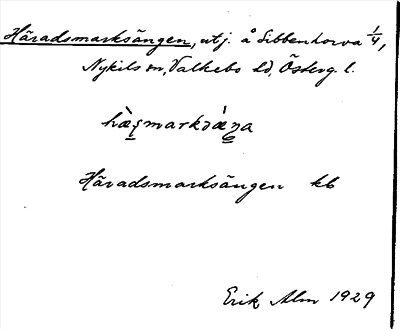 Häradsmarksängen, utj. å Sibbenhorva 1/4,
Nykils sn, Valkebo hd, Österg. l.
hæ̀ʂmarksǽŋa
Häradsmarksängen kb
Erik Alm 1929